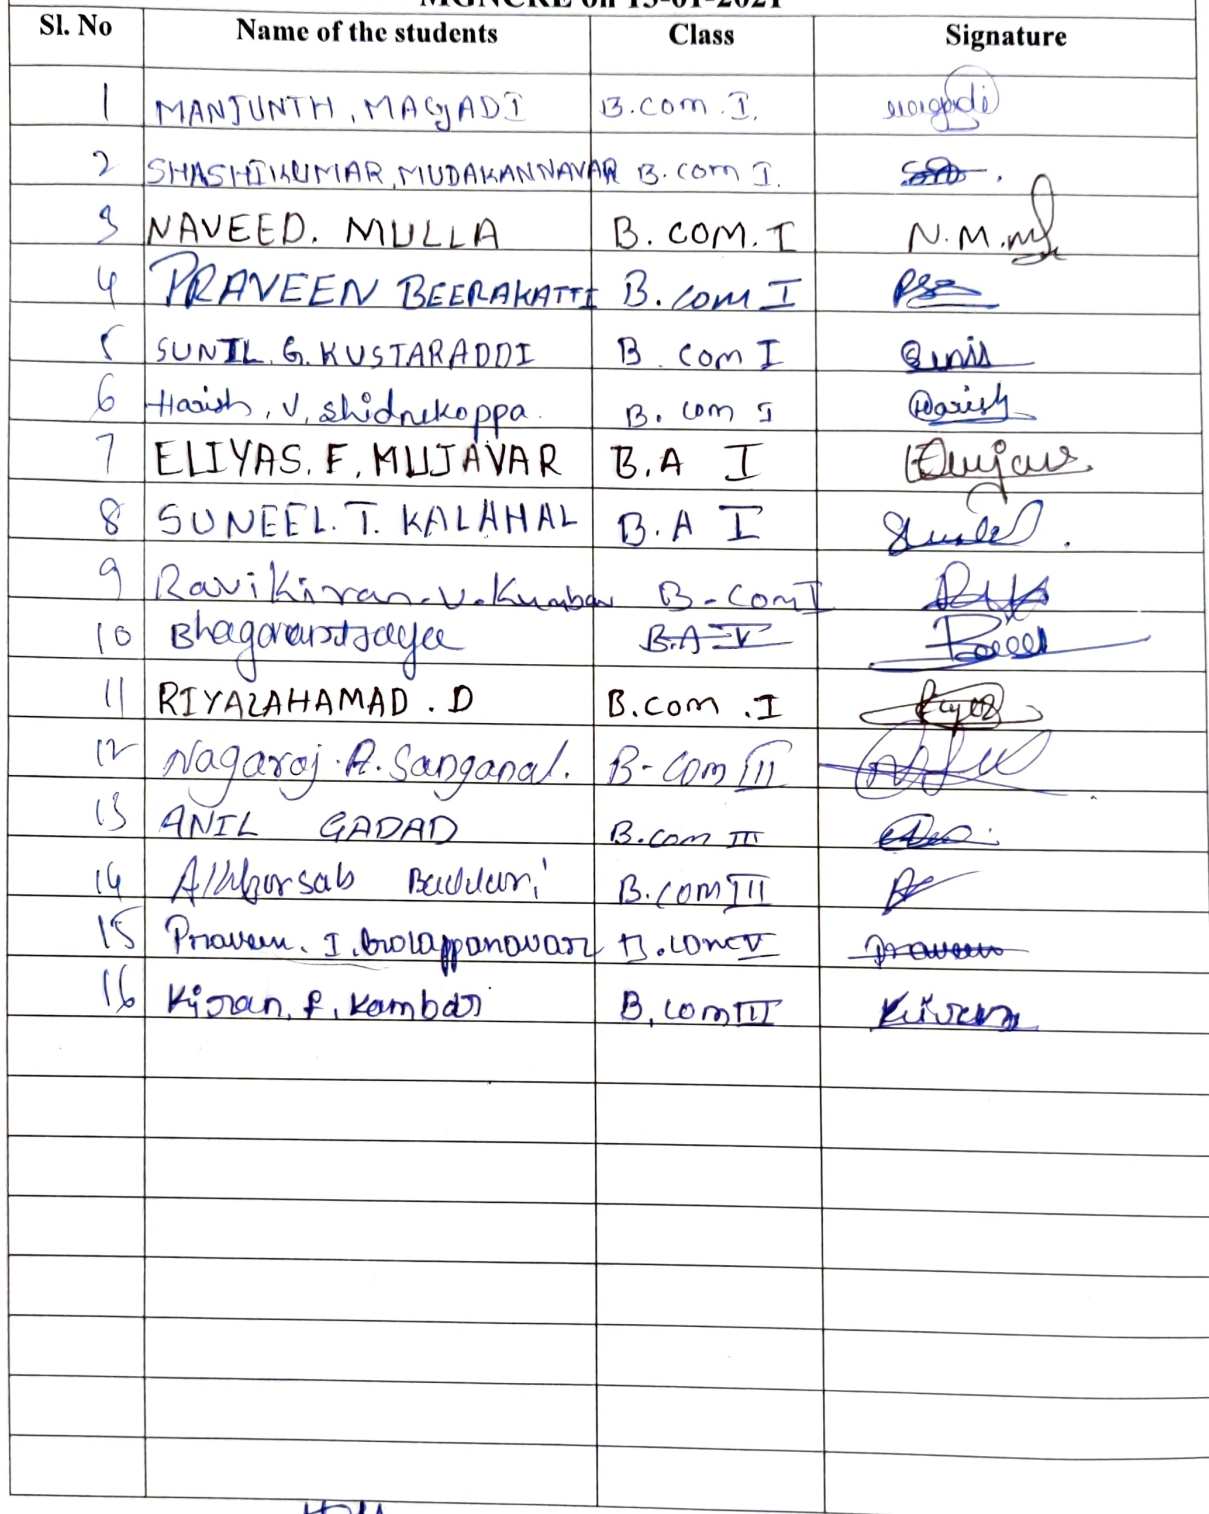 MGNCRE on 13-01-2021
Sl. No Name of the students Class Signature
1 MANJUNTH. MAGADI B.com. I. magadi
2 SHASHIKUMAR. MUDAKANNAVAR B. com I.
3 NAVEED. MULLA B. COM. I N.M.
4 PRAVEEN BEERAKATTI B. com I
5 SUNIL. G. KUSTARADDI B. com I Sunil
6 Harish. V. Shidnekoppa. B. com I Harish
7 ELIYAS. F. MUJAVAR B.A I
8 SUNEEL. T. KALAHAL B.A I
9 Ravikiran. V. Kumbar B-Com I
10 B.A V
11 RIYAZAHAMAD. D B.com. I
12 Nagaraj. A. Sanganal. B-Com III
13 ANIL GADAD B.com III
14 B.com III
15 Praveen. I. B.com V Praveen
16 Kiran. F. Kambar B.com III Kiran